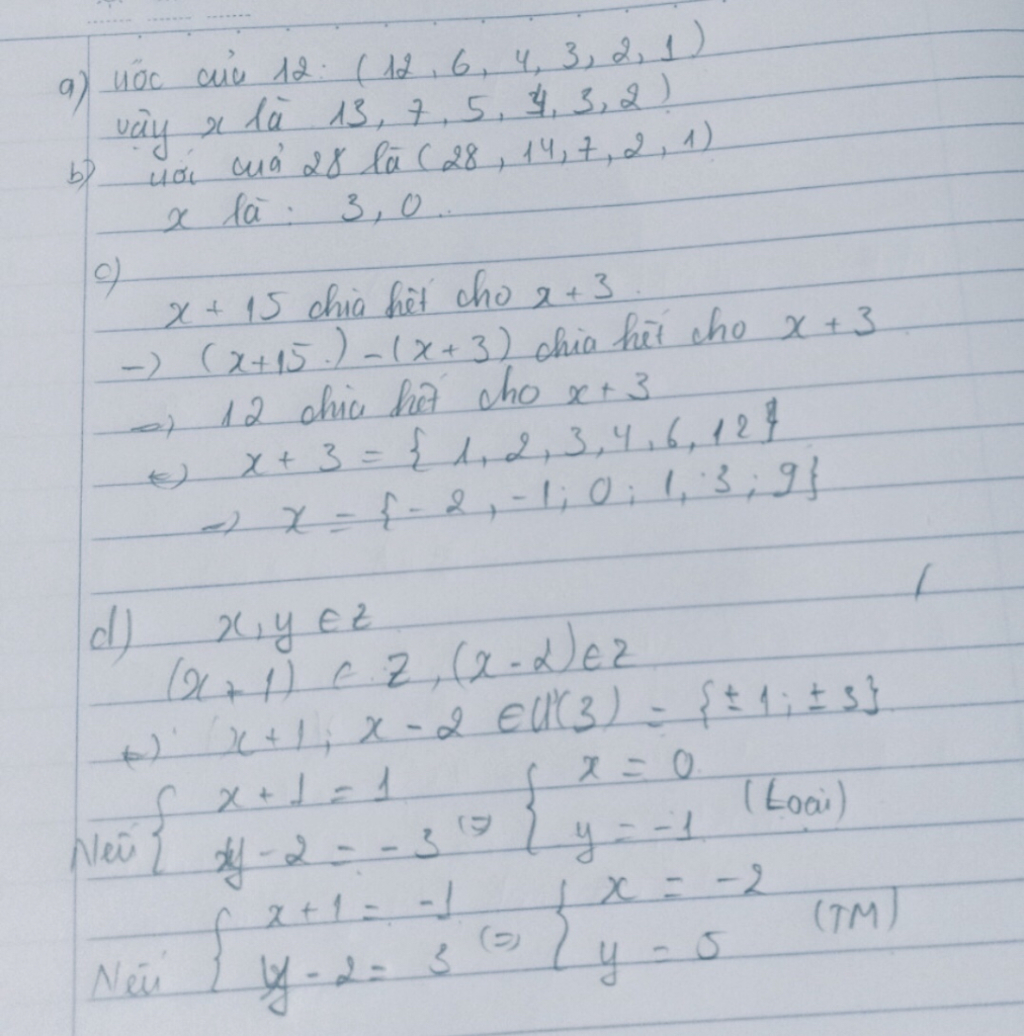 a) ước của 12: (12, 6, 4, 3, 2, 1)
vậy x là 13, 7, 5, 4, 3, 2)
b) ước quả 28 là (28, 14, 7, 2, 1)
x là: 3, 0.
c)
x + 15 chia hết cho x + 3.
-> (x+15.) - (x+3) chia hết cho x + 3
=> 12 chia hết cho x + 3
<=> x + 3 = { 1, 2, 3, 4, 6, 12}
=> x = {-2, -1; 0; 1, 3; 9}
d) x, y ∈ Z
(x + 1) ∈ Z, (x - 2) ∈ Z
<=> x + 1; x - 2 ∈ Ư(3) = {±1; ±3}
Nếu { x + 1 = 1 y - 2 = -3 <=> { x = 0 y = -1 (Loại)
Nếu { x + 1 = -1 y - 2 = 3 <=> { x = -2 y = 5 (TM)